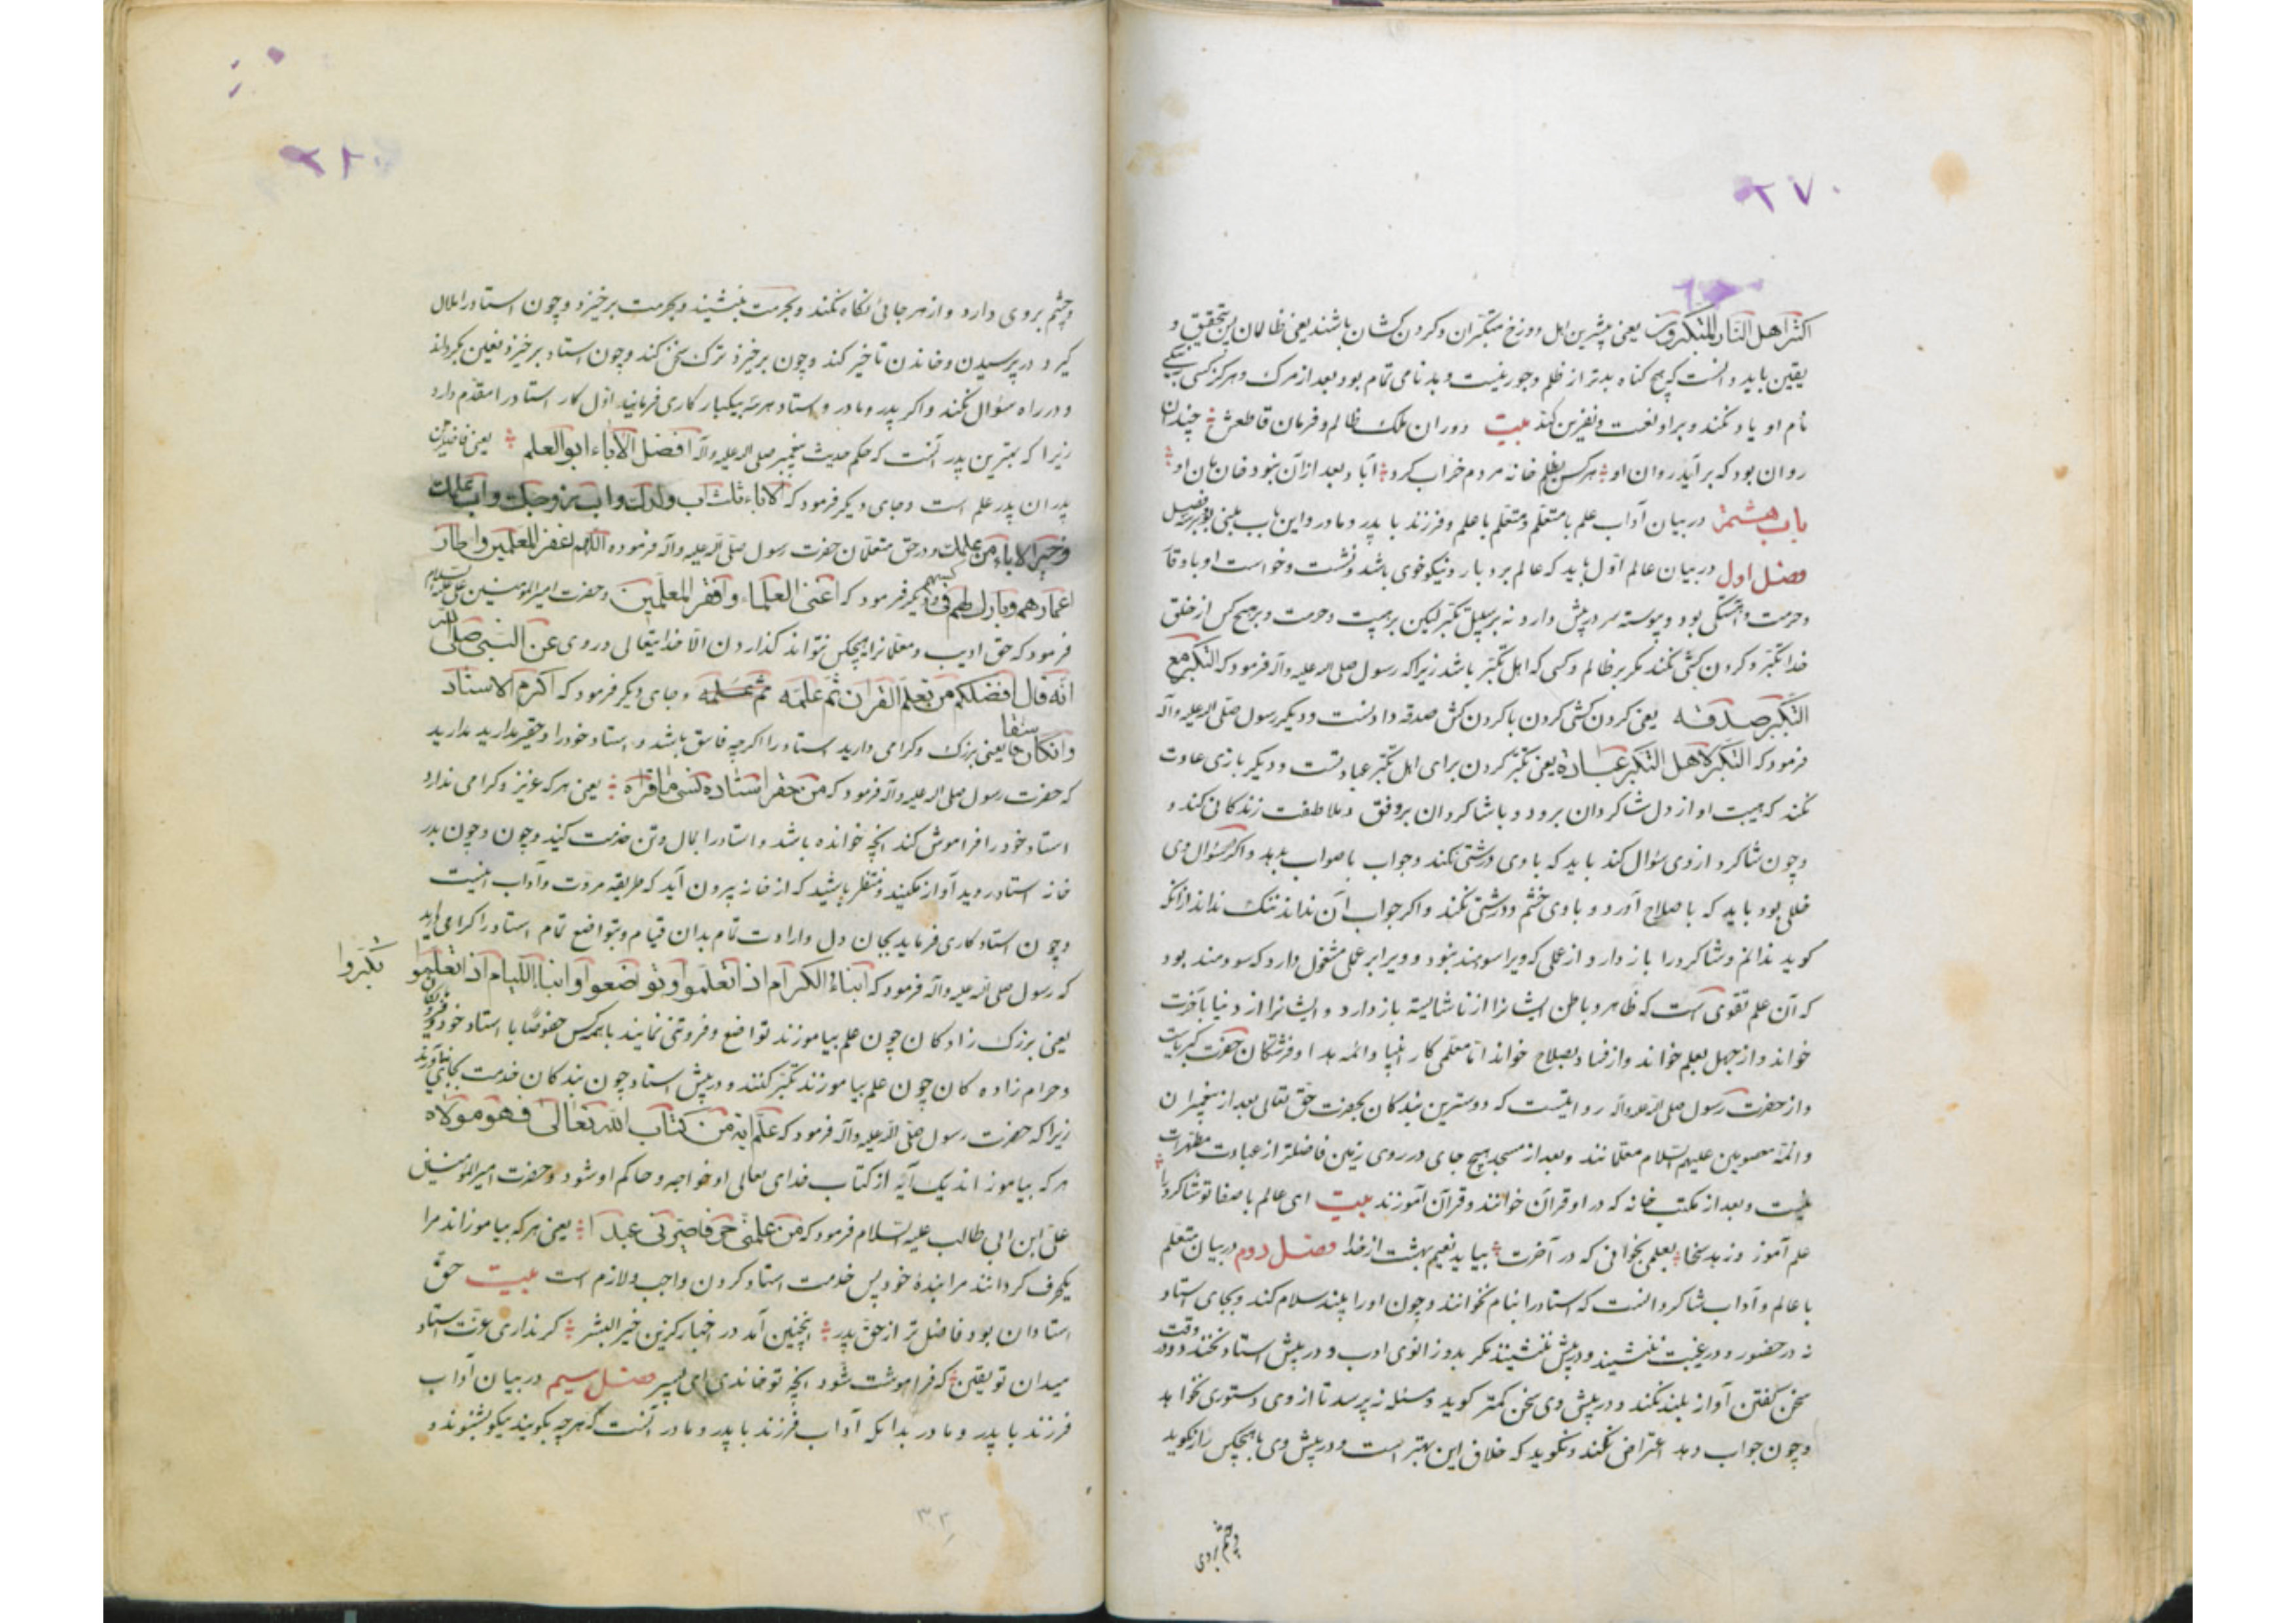 ۲۷۰
اکثر اهل النار المتکبرون یعنی پیشترین اهل دوزخ متکبران و کردن کشان باشند یعنی ظالمان پس بتحقیق و
یقین باید دانست که هیچ کناه بدتر از ظلم و جور نیست و بدنامی تمام بود بعد از مرک و هرکز کسی به نیکی
نام او یاد نکنند و بر او لعنت و نفرین کنند بیت دوران ملک ظالم و فرمان قاطعش چندان
روان بود که برآید روان او هر کس بظلم خانه مردم خراب کرد آباد بعد از آن نبود خان مان او
باب هشتم در بیان آداب علم با متعلم و متعلم با علم و فرزند با پدر و مادر و این باب مبنی بود بر سه فصل
فصل اول در بیان عالم اول باید که عالم بردبار و نیکوخوی باشد و نشست و خواست او باوقار
و حرمت و آهستکی بود و پیوسته سر در پیش دارد نه بر سبیل تکبر لیکن بر هیبت و حرمت و بر هیچ کس از خلق
خدا تکبر و کردن کشی نکند مکر بر ظالم و کسی که اهل تکبر باشد زیرا که رسول صلی الله علیه و آله فرمود که التکبر مع
التکبر صدقه یعنی کردن کشی کردن با کردن کش صدقه دادنست و دیکر رسول صلی الله علیه و آله
فرمود که التکبر لاهل التکبر عبادة یعنی تکبر کردن برای اهل تکبر عبادتست و دیکر بازی عادت
نکند که هیبت او از دل شاکردان برود و با شاکردان برفق و ملاطفت زندکانی کند و
و چون شاکرد از وی سؤال کند باید که با وی درشتی نکند و جواب با صواب بدهد و اکر سؤال وی
خللی بود باید که باصلاح آورد و با وی خشم و درشتی نکند و اکر جواب آن نداند ننک نداند از آنکه
کوید ندانم و شاکرد را باز دارد از علمی که ویرا سودمند نبود و ویرا بر علمی مشغول دارد که سودمند بود
که آن علم تقوی است که ظاهر و باطن ایشانرا از ناشایسته باز دارد و ایشانرا از دنیا بآخرت
خواند و از جهل بعلم خواند و از فساد بصلاح خواند اما معلمی کار انبیا و ائمه هدا و فرشتکان حضرت کبریاست
و از حضرت رسول صلی الله علیه و آله روایتست که دوسترین بندکان بحضرت حق تعالی بعد از پیغمبران
و ائمه معصومین علیهم السلام معلمانند و بعد از مسجد هیچ جای در روی زمین فاضلتر از عبادت مطهرات
نیست و بعد از مکتب خانه که در او قرآن خوانند و قرآن آموزند بیت ای عالم باصفا تو شاکرد را
علم آموز و زهد و سخا بعلمی بخوانی که در آخرت بیابد نعیم بهشت از خدا فصل دوم در بیان متعلم
با عالم و آداب شاکرد آنست که استاد را بنام نخوانند و چون او را بیند سلام کند و بجای استاد
نه در حضور و در غیبت ننشیند و در پیش ننشیند مکر بدو زانوی ادب و در پیش استاد نخندد و در وقت
سخن کفتن آواز بلند نکند و در پیش وی سخن کمتر کوید و مسئله نپرسد تا از وی دستوری نخواهد
و چون جواب دهد اعتراض نکند و نکوید که خلاف این بهتر است و در پیش وی با هیچکس راز نکوید
و چشم بروی
و چشم بروی دارد و از هر جائی نکاه نکند و بحرمت بنشیند و بحرمت برخیزد و چون استاد را ملال
کیرد در پرسیدن و خاندن تاخیر کند و چون برخیزد ترک سخن کند و چون استاد برخیزد نعلین بکرداند
و در راه سؤال نکند و اکر پدر و مادر و استاد هر سه بیکبار کاری فرمایند اول کار استاد را مقدم دارد
زیرا که بهترین پدر آنست که حکم حدیث پیغمبر صلی الله علیه و آله افضل الآباء ابو العلم یعنی فاضلترین
پدران پدر علم است و جای دیکر فرمود که الآباء ثلث اب ولدک و اب زوجک و اب علمک
و خیر الآباء من علمک و در حق متعلمان حضرت رسول صلی الله علیه و آله فرموده اللهم اغفر للمعلمین و اطل
اعمارهم و بارک لهم فی کسبهم و دیکر فرمود که اغنی العلماء و افقر المعلمین و حضرت امیر المومنین علی علیه السلام
فرمود که حق ادیب و معلمانرا هیچکس نتواند کذاردن الا خدایتعالی و روی عن النبی صلی الله
انه قال افضلکم من تعلم القرآن ثم علمه و جای دیکر فرمود که اکرم الاستاد
و ان کان فاسقا یعنی بزرک و کرامی دارید استاد را اکرچه فاسق باشد و استاد خود را حقیر مدارید
که حضرت رسول صلی الله علیه و آله فرمود که من حقر استاده نسی ما قراه یعنی هر که عزیز و کرامی ندارد
استاد خود را فراموش کند آنچه خوانده باشد و استاد را بمال و تن خدمت کنید و چون و چون بدر
خانه استاد روید آواز مکنید و منتظر باشید که از خانه بیرون آید که طریقه مروت و آداب اینست
و چون استاد کاری فرماید بجان و دل و ارادت تمام بدان قیام و بتواضع تمام استاد را کرامی دارید
که رسول صلی الله علیه و آله فرمود که ابناء الکرام اذا تعلموا و تواضعوا و ابناء اللیام اذا تعلموا تکبروا
یعنی بزرک زادکان چون علم بیاموزند تواضع و فروتنی نمایند با همه کس خصوصا با استاد خود
و حرام زاده کان چون علم بیاموزند تکبر کنند و در پیش استاد چون بندکان خدمت بجای نیاورند
زیرا که حضرت رسول صلی الله علیه و آله فرمود که علم آیة من کتاب الله تعالی فهو مولاه
هر که بیاموزاند یک آیه از کتاب خدای تعالی او خواجه و حاکم او شود و حضرت امیر المومنین
علی ابن ابی طالب علیه السلام فرمود که من علمنی حرفا صیرنی عبدا یعنی هر که بیاموزاند مرا
یکحرف کرداند مرا بندهٔ خود پس خدمت استاد کردن واجب و لازم است بیت حق
استادان بود فاضل تر از حق پدر اینچنین آمد در اخبار کزین خیر البشر کر نداری عزت استاد
میدان تو یقین که فراموشت شود آنچه تو خاندی ای پسر فصل سیم در بیان آداب
فرزند با پدر و مادر بدانکه آداب فرزند با پدر و مادر آنست که هرچه بکویند نیکو بشنوند و